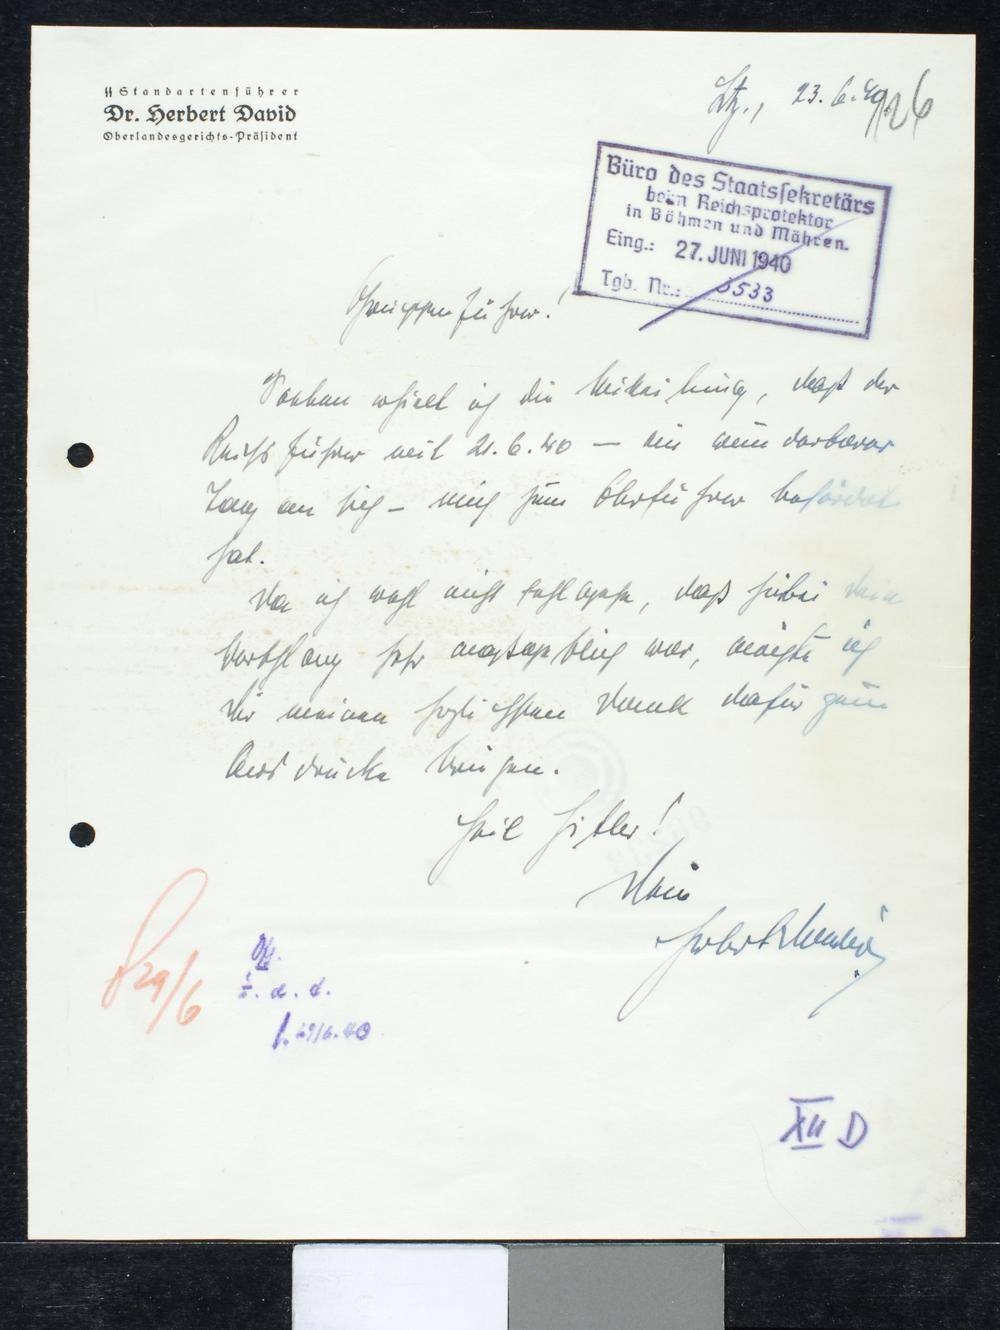 SS Standartenführer
Dr. Herbert David
Oberlandesgerichts-Präsident
Ltz., 23. 6. 40
126
Büro des Staatssekretärs
beim Reichsprotektor
in Böhmen und Mähren.
Eing.: 27. JUNI 1940
Tgb. Nr.: 3533
Gruppenführer!
Soeben erhielt ich die Mitteilung, daß der
Reichsführer mit 21. 6. 40 – ein wunderbarer
Tag an sich – mich zum Oberführer befördert
hat.
Da ich wohl nicht fehlgehe, daß hiebei Dein
Vorschlag sehr ausschlaggebend war, möchte ich
Dir meinen herzlichsten Dank dafür zum
Ausdrucke bringen.
Heil Hitler!
Dein
Herbert David
29/6
z. d. A.
29/6. 40
XII D